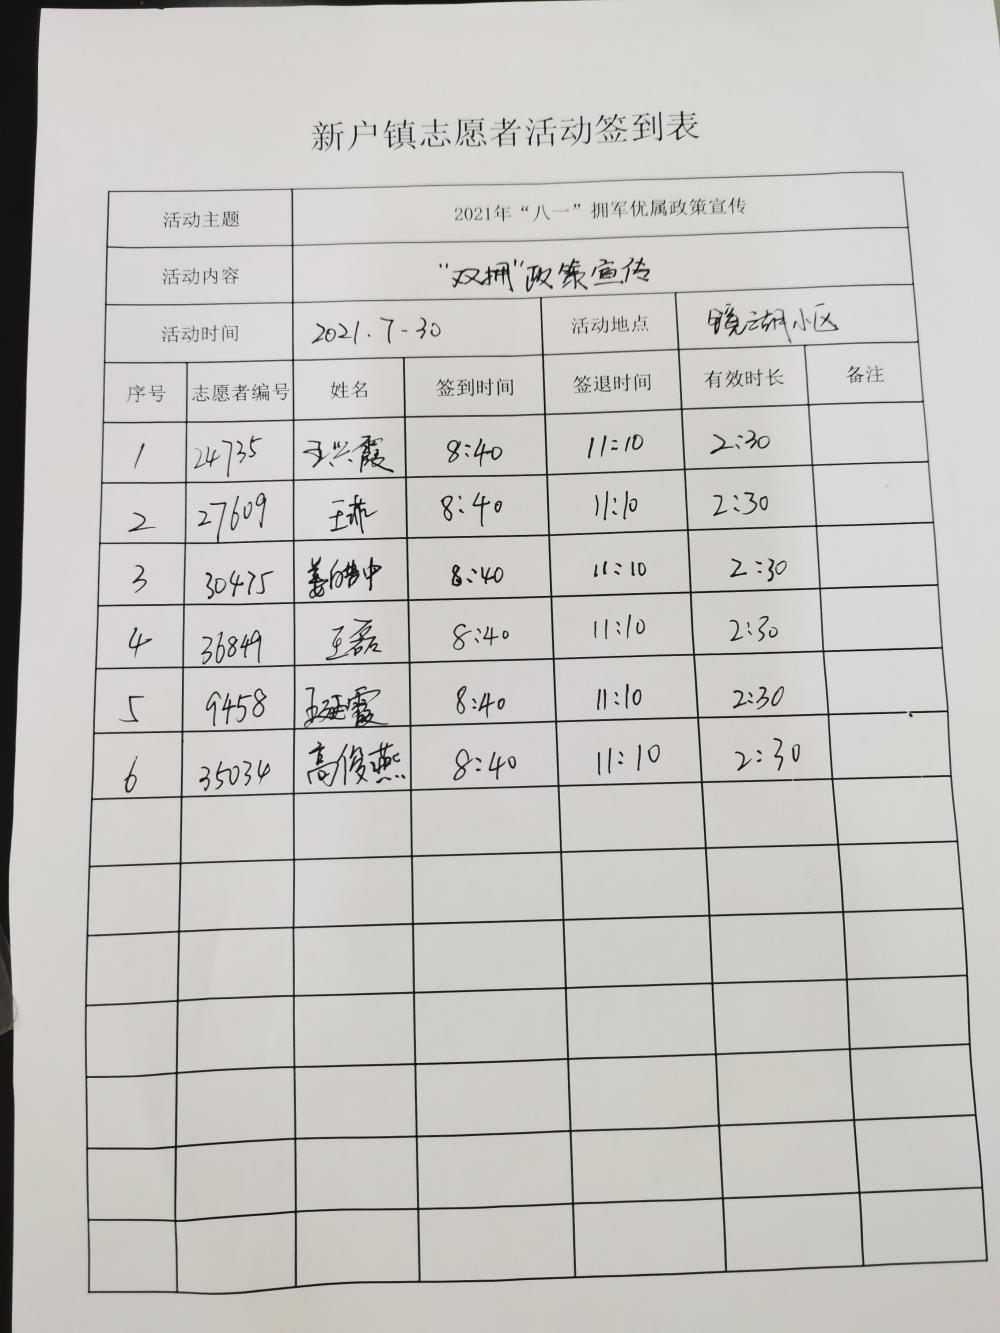 新户镇志愿者活动签到表
活动主题 2021年“八一”拥军优属政策宣传
活动内容 “双拥”政策宣传
活动时间 2021.7-30 活动地点 镜湖小区
序号 志愿者编号 姓名 签到时间 签退时间 有效时长 备注
1 24735 王兴霞 8:40 11:10 2:30
2 27609 王菲 8:40 11:10 2:30
3 30475 8:40 11:10 2:30
4 36849 王磊 8:40 11:10 2:30
5 9458 8:40 11:10 2:30
6 35034 高俊燕 8:40 11:10 2:30